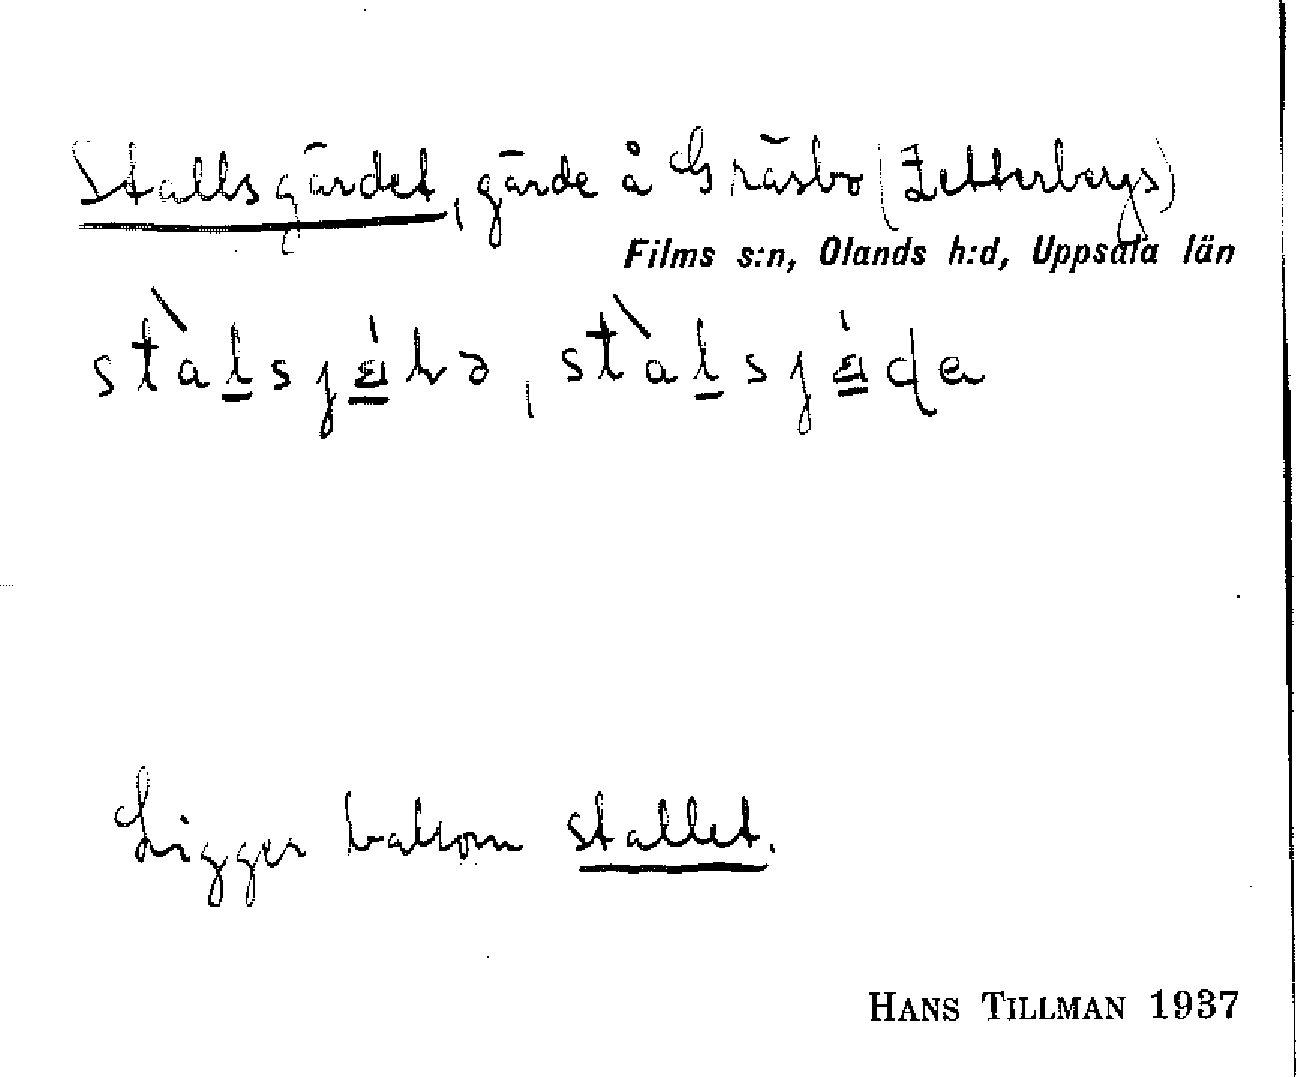 Stallsgärdet, gärde å Gräsbo (Zetterbergs)
Films s:n, Olands h:d, Uppsala län
Ligger bakom stallet.
HANS TILLMAN 1937